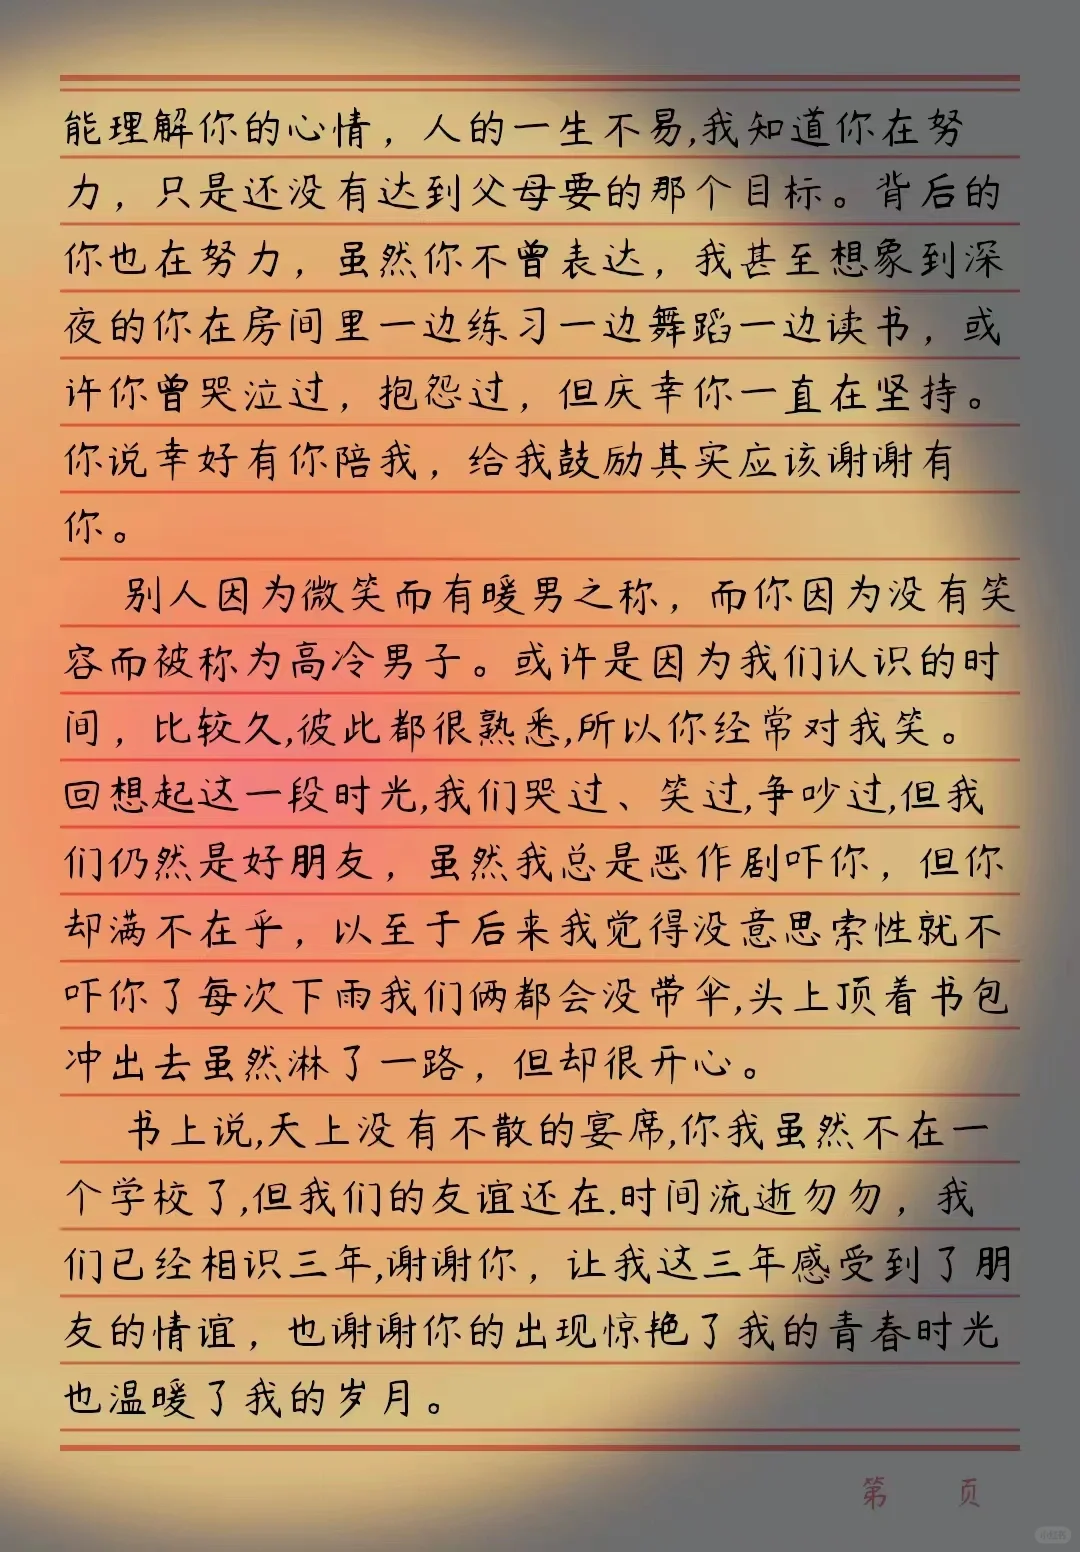 能理解你的心情，人的一生不易,我知道你在努
力，只是还没有达到父母要的那个目标。背后的
你也在努力，虽然你不曾表达，我甚至想象到深
夜的你在房间里一边练习一边舞蹈一边读书，或
许你曾哭泣过，抱怨过，但庆幸你一直在坚持。
你说幸好有你陪我，给我鼓励其实应该谢谢有
你。
别人因为微笑而有暖男之称，而你因为没有笑
容而被称为高冷男子。或许是因为我们认识的时
间，比较久,彼此都很熟悉,所以你经常对我笑。
回想起这一段时光,我们哭过、笑过,争吵过,但我
们仍然是好朋友，虽然我总是恶作剧吓你，但你
却满不在乎，以至于后来我觉得没意思索性就不
吓你了每次下雨我们俩都会没带伞,头上顶着书包
冲出去虽然淋了一路，但却很开心。
书上说,天上没有不散的宴席,你我虽然不在一
个学校了,但我们的友谊还在.时间流逝勿勿，我
们已经相识三年,谢谢你，让我这三年感受到了朋
友的情谊，也谢谢你的出现惊艳了我的青春时光
也温暖了我的岁月。
第 页
小红书